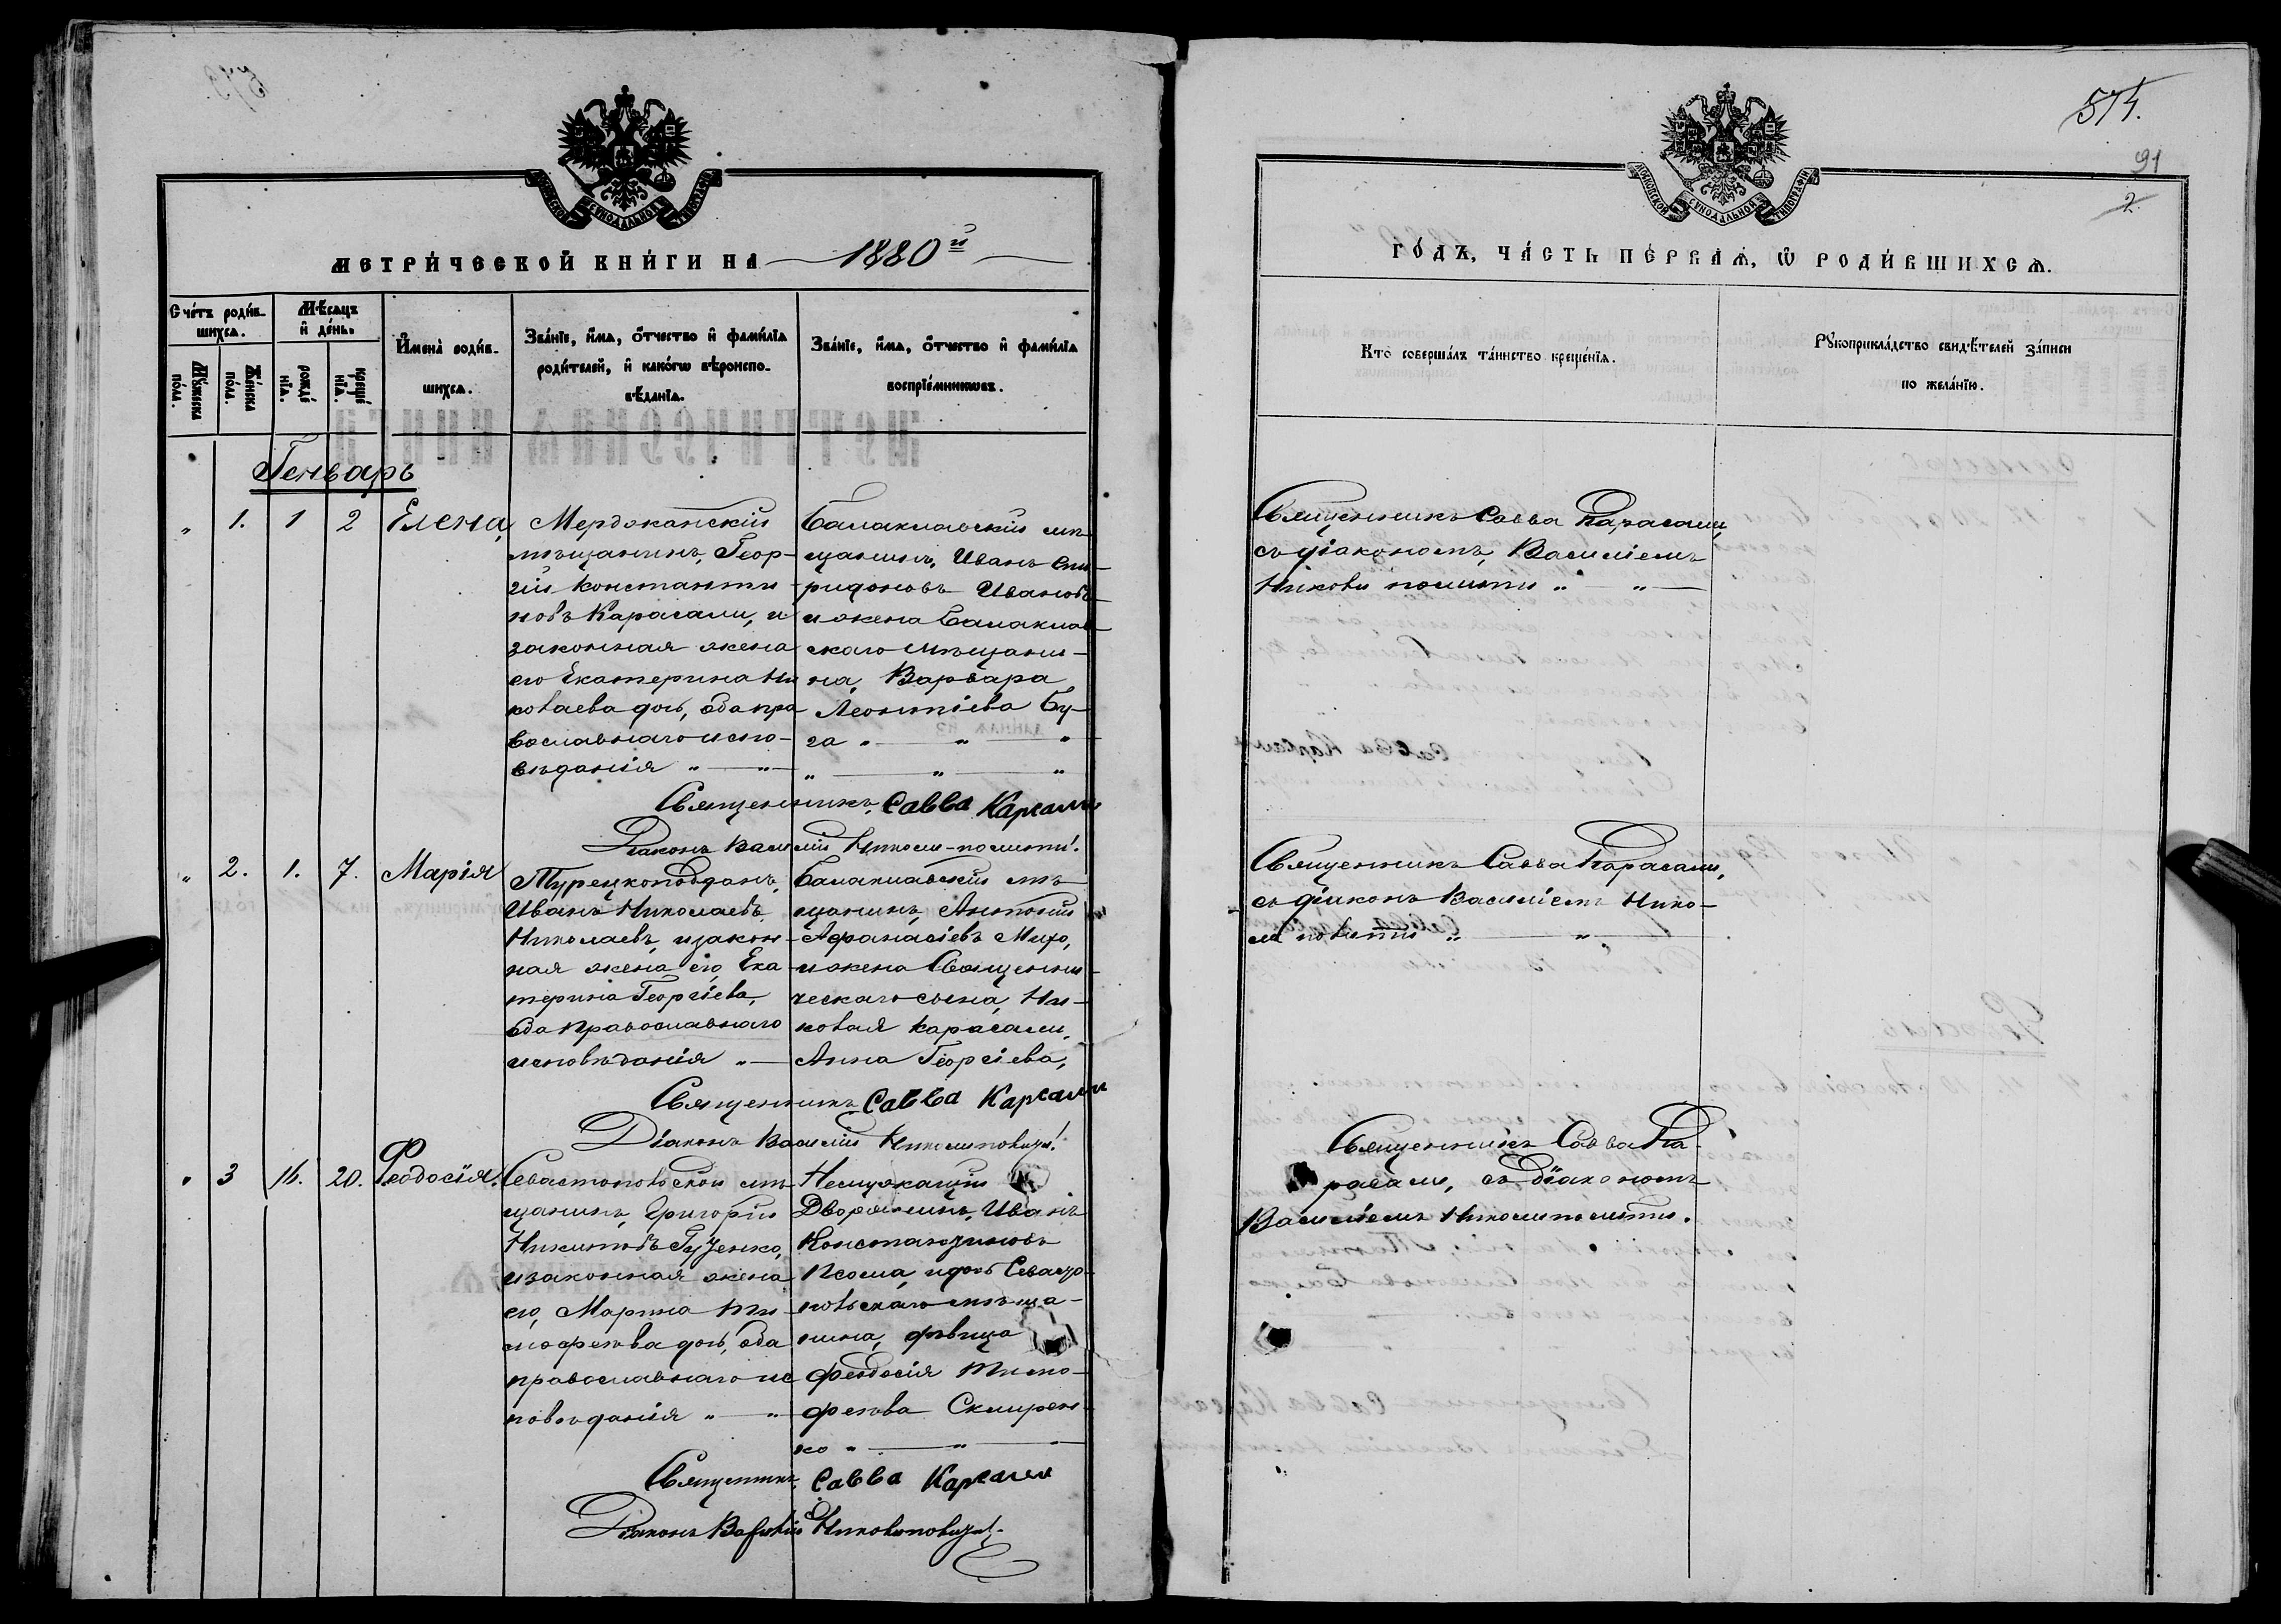 574.
91
2
МОСКОВСКОЙ СѴНОДАЛЬНОЙ ТИПОГРАФІИ
МЕТРИ́ЧЕСКОЙ КНИ́ГИ НА 1880й
Сче́тъ роди́в-
шихся.
Му́жеска по́ла.
Же́нска по́ла.
Мѣ́сяцъ и де́нь.
рожде́нія.
креще́нія.
Имена̀ роди́в-
шихся.
Зва́ніе, и́мя, о́тчество и фами́лія
роди́телей, и како́гѡ вѣроиспо-
вѣ́данія.
Зва́ніе, и́мя, о́тчество и фами́лія
воспріе́мникѡвъ.
Генварь
„ 1. 1 2 Елена
Мердоканскій
мѣщанинъ, Геор-
гій Константи
новъ Карасали, и
законная жена
его Екатерина Ни
колаева дочь, оба пра
вославнаго испо-
вѣданія „ — „
Балаклавскій мѣ
щанинъ, Иванъ Спи-
ридоновъ Ивановъ
и жена Балаклав
скаго мѣщани-
на, Варвара
Леонтіева Бу-
га „ — „ — „
„ — „ — „
Священникъ Савва Карсали
Діаконъ Василій Николи-полити.
„ 2. 1. 7. Марія
Турецкоподдан.
Иванъ Николаевъ
Николаевъ, и закон-
ная жена его, Ека-
терина Георгіева,
оба православнаго
исповѣданія „ —
Балаклавскій мѣ
щанинъ, Антоній
Афанасіевъ Михо,
и жена Священни-
ческаго сына, Ни-
колая Карасали,
Анна Георгіева,
Священникъ Савва Карсали
Діаконъ Василій Николиполити.
„ 3 16. 20. Феодосія.
Севастопольской мѣ
щанинъ, Григорій
Никитовъ Гуценко,
и законная жена
его, Марина Ти
мофеева дочь, оба
православнаго ис
повѣданія „ — „
Неслужащій
Дворянинъ, Иванъ
Константиновъ
Псома, и дочь Севасто-
польскаго мѣща-
нина, дѣвица
Феодосія Тимо-
феева Скмирен-
ко „ — „ —
Священникъ Савва Карсали
Діаконъ Василій Николиполити.
ГО́ДЪ, ЧА́СТЬ ПЕ́РВАЯ, Ѡ РОДИ́ВШИХСЯ.
Кто̀ соверша́лъ та́инство креще́нія.
Рꙋкоприкла́дство свидѣ́телей за́писи
по жела́нію.
Священникъ Савва Карасали,
съ діакономъ, Василіемъ
Николи полити „ — „ —
Священникъ Савва Карасали,
съ діаконъ Василіемъ Нико-
ли полити „ — „ —
Священникъ Савва Ка-
расали, съ діакономъ
Василіемъ Николиполити.